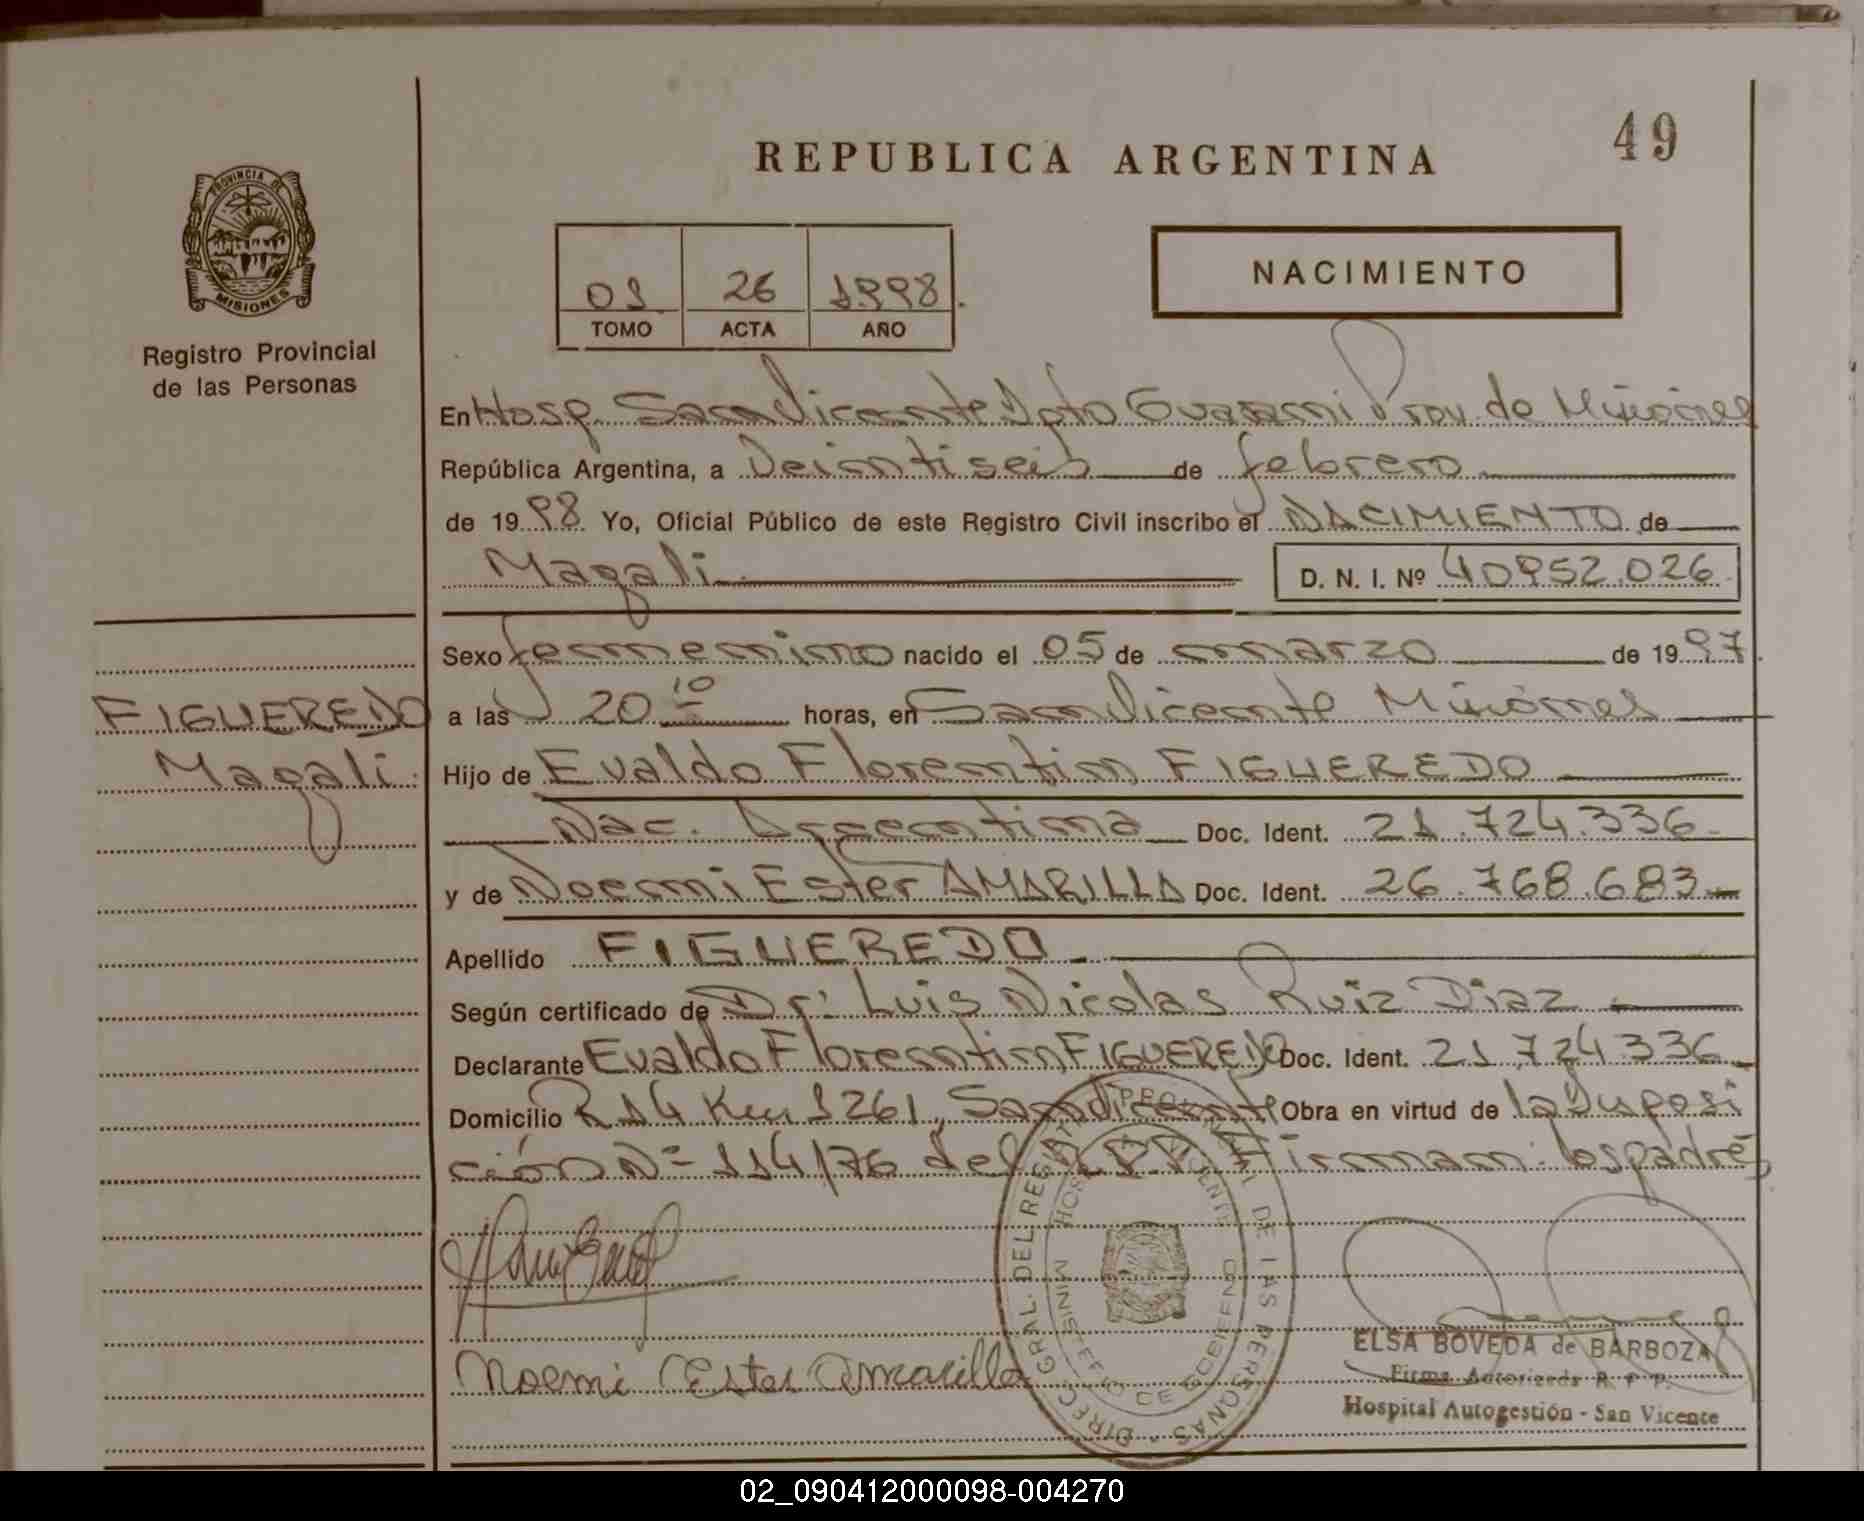 49
REPUBLICA ARGENTINA
PROVINCIA DE
MISIONES
Registro Provincial
de las Personas
01 26 1998.
TOMO ACTA AÑO
NACIMIENTO
En Hosp. San Vicente Dpto Guarani Prov. de Misiones
República Argentina, a Veintiseis de febrero
de 1998 Yo, Oficial Público de este Registro Civil inscribo el NACIMIENTO de
Magali D. N. I. Nº 40952.026
Sexo femenino nacido el 05 de marzo de 1997.
FIGUEREDO
Magali.
a las 20 10 horas, en San Vicente Misiones
Hijo de Evaldo Florentin FIGUEREDO
Nac. Argentina Doc. Ident. 21.724.336.
y de Noemi Ester AMARILLA Doc. Ident. 26.768.683.-
Apellido FIGUEREDO
Según certificado de Dr: Luis Nicolas Ruiz Diaz
Declarante Evaldo Florentin FIGUEREDO Doc. Ident. 21.724.336
Domicilio R 14 Km 1261, San Vicente Obra en virtud de la Disposi
ción Nº 114/76 del R.P.P. Firman: los padres
Noemi Ester Amarilla
DIRECC. GRAL. DEL REG DE LAS PERSONAS
MINISTERIO DE GOBIERNO
ELSA BOVEDA de BARBOZA
Firma Autorizada R. P. P.
Hospital Autogestión - San Vicente
02_090412000098-004270